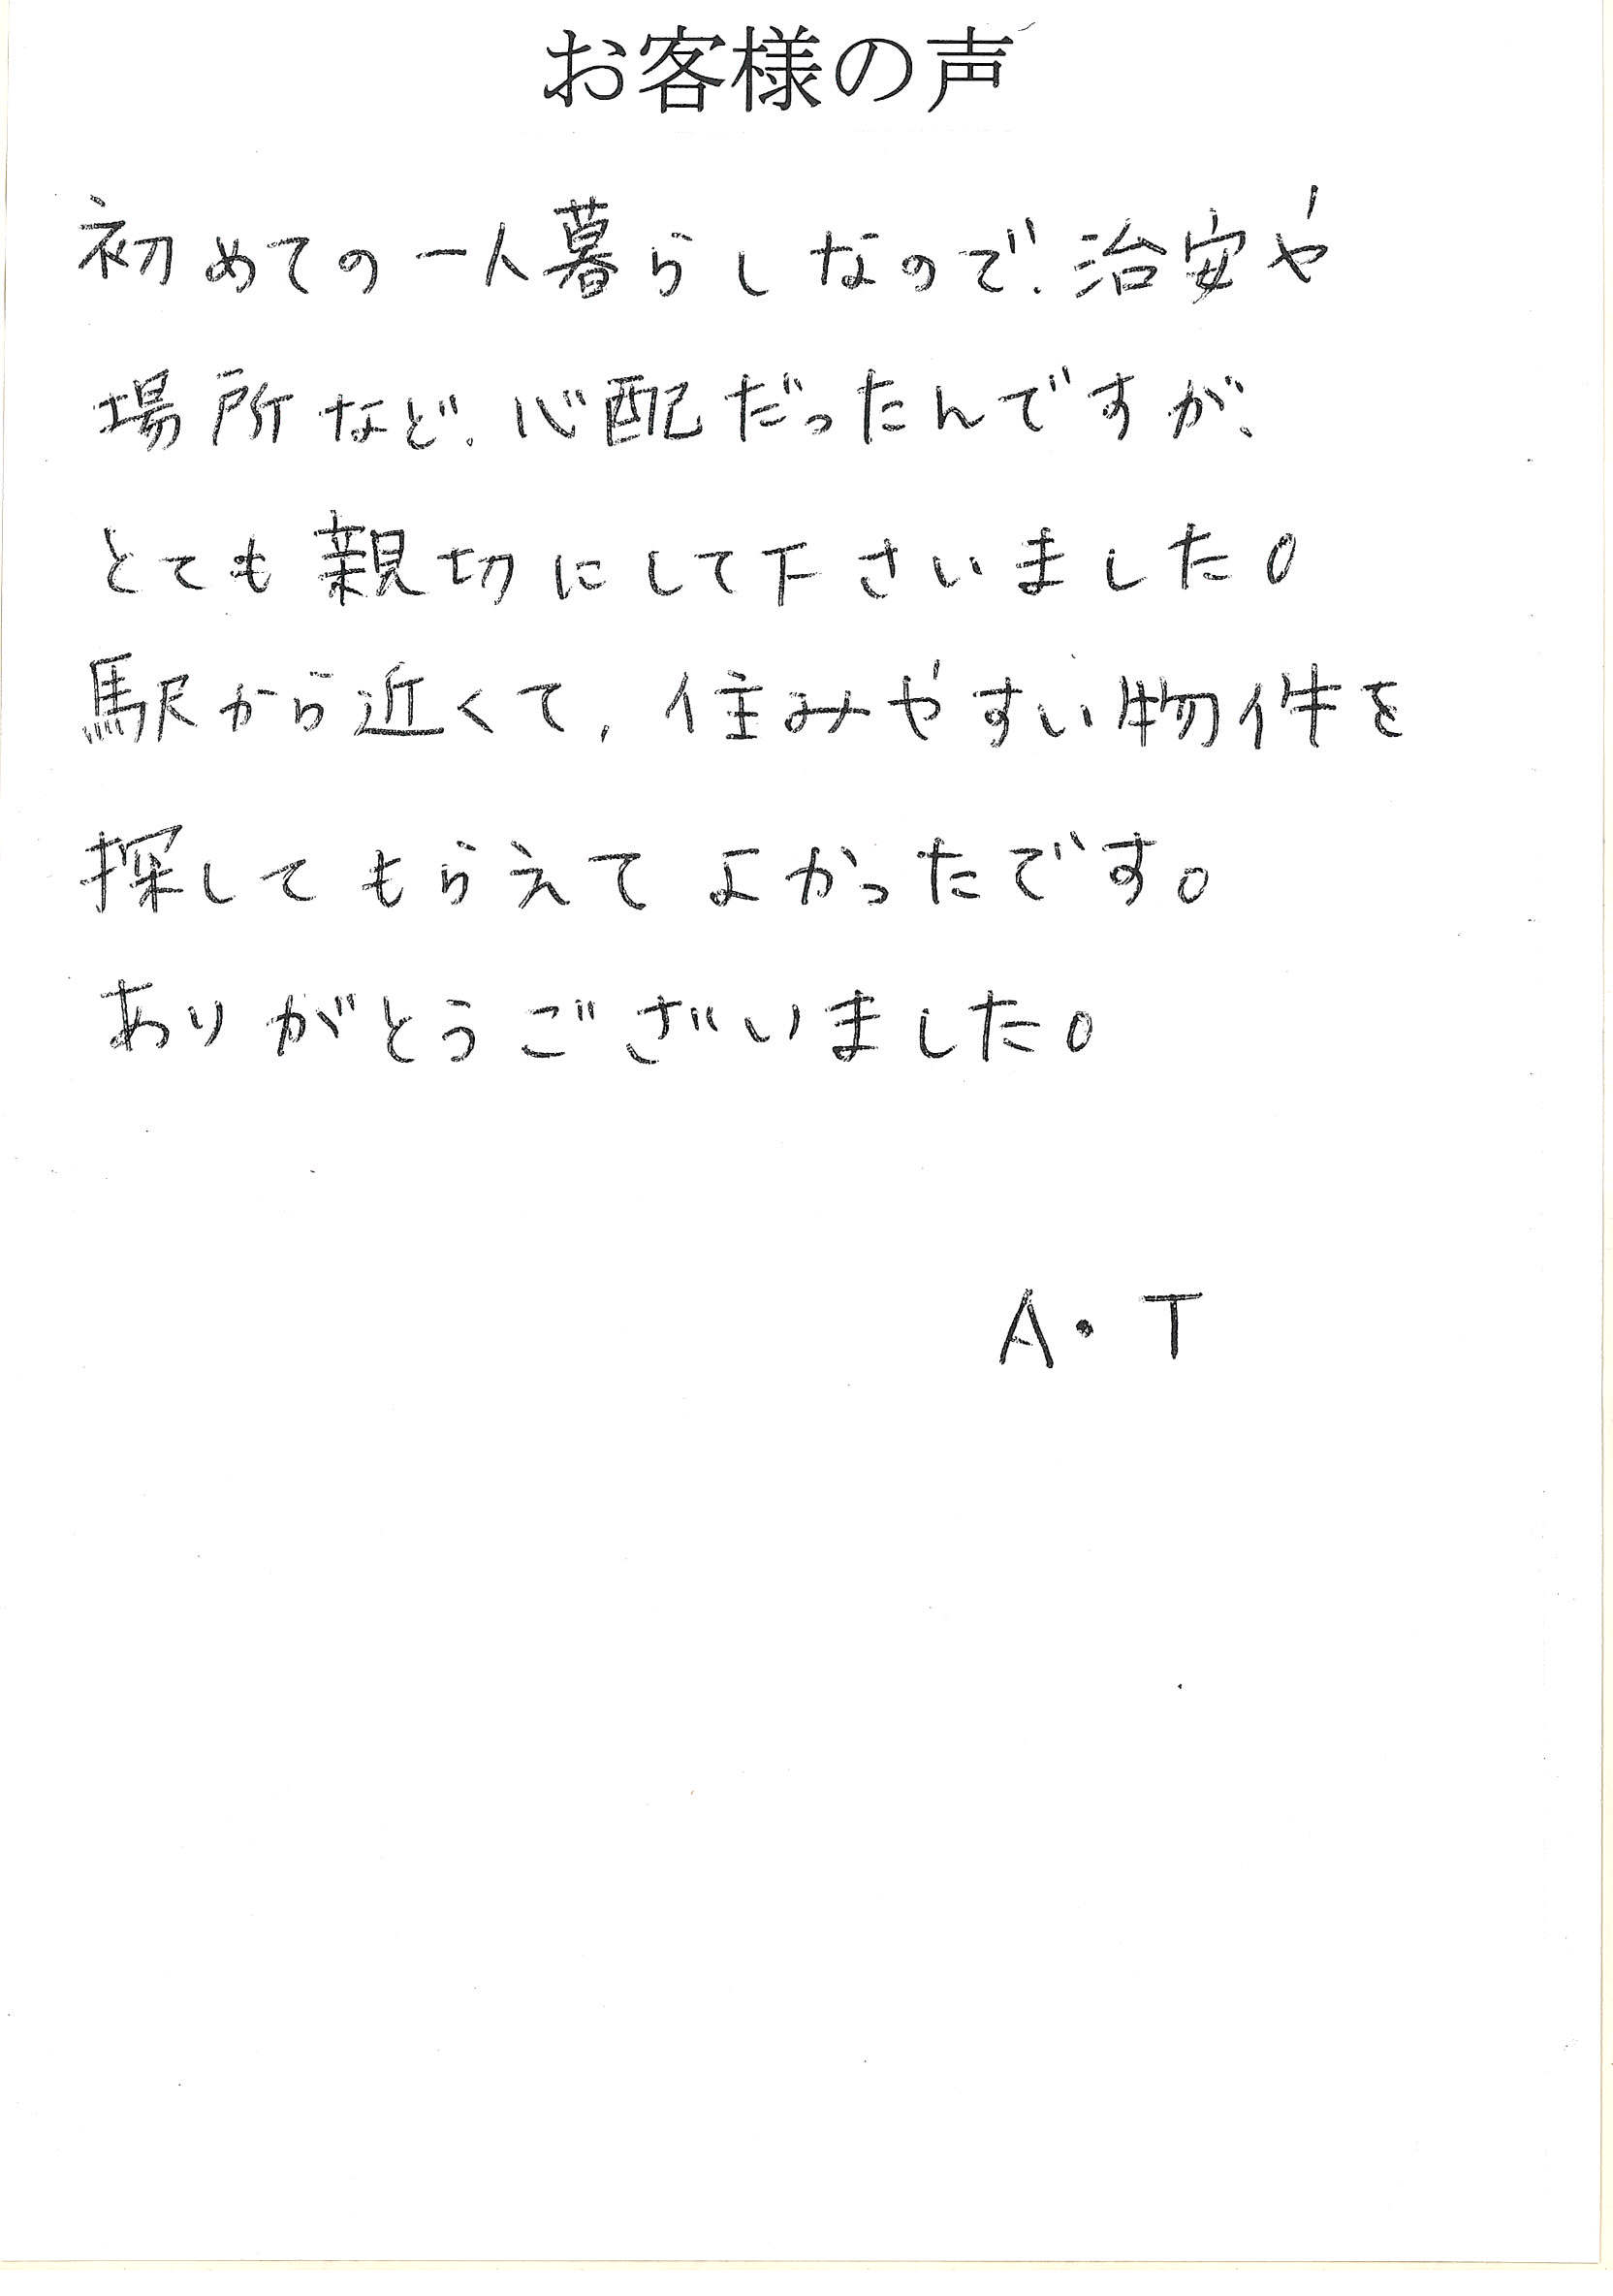 お客様の声
初めての一人暮らしなので、治安や
場所など、心配だったんですが、
とても親切にして下さいました。
駅から近くて、住みやすい物件を
探してもらえてよかったです。
ありがとうございました。
A・T